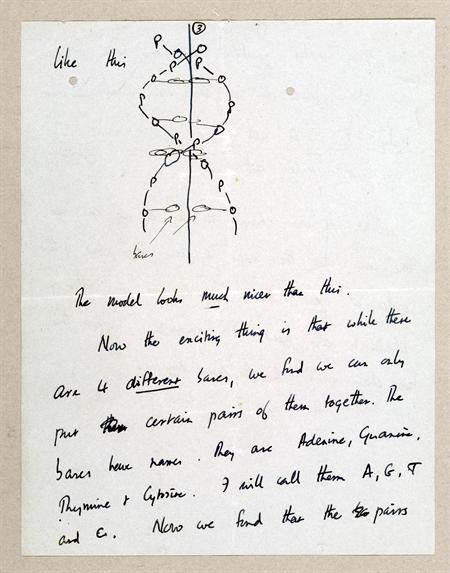 3
Like this
P
P
P
P
P
P
P
P
bases
The model looks much nicer than this.
Now the exciting thing is that while there
are 4 different bases, we find we can only
put certain pairs of them together. The
bases have names. They are Adenine, Guanine,
Thymine & Cytosine. I will call them A, G, T
and C. Now we find that the pairs